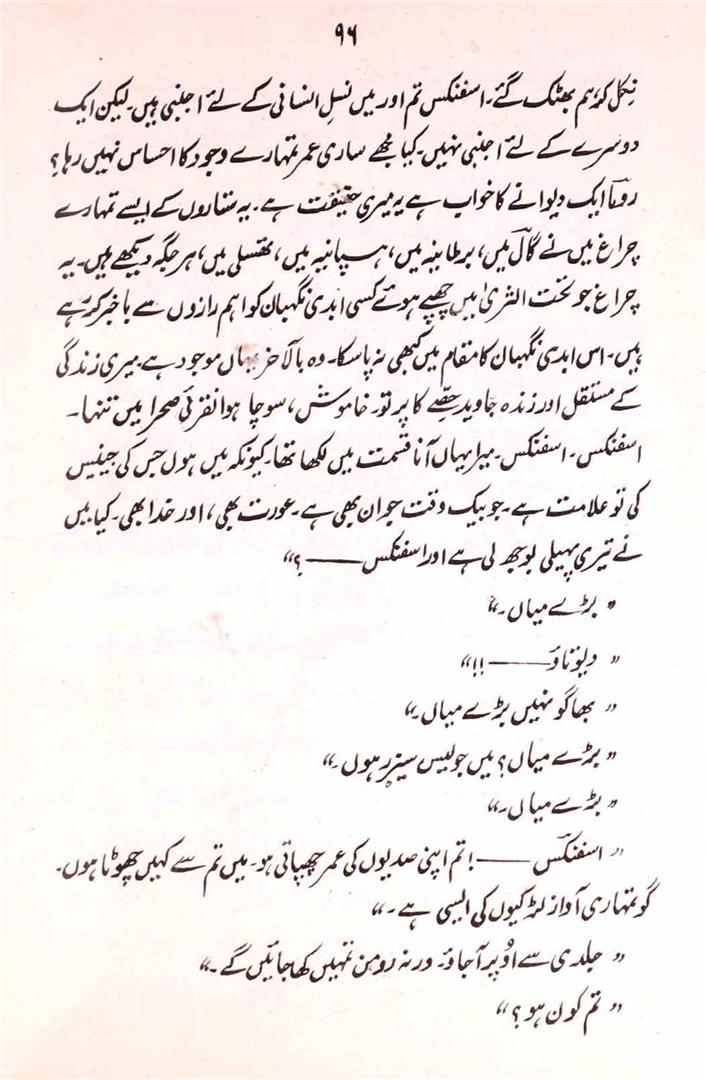 ۹۶
نکل کر ہم بھٹک گئے۔ اسفنکس تم اور میں نسلِ انسانی کے لئے اجنبی ہیں۔ لیکن ایک
دوسرے کے لئے اجنبی نہیں۔ کیا مجھے ساری عمر تمہارے وجود کا احساس نہیں رہا؟
روما ایک دیوانے کا خواب ہے یہ میری حقیقت ہے۔ یہ ستاروں کے ایسے تمہارے
چراغ میں نے گال میں، برطانیہ میں، ہسپانیہ میں، تھسلی میں، ہر جگہ دیکھے ہیں۔ یہ
چراغ جو تحت الثریٰ میں چھپے ہوئے کسی ابدی نگہبان کو اہم رازوں سے باخبر کر رہے
ہیں۔ اس ابدی نگہبان کا مقام میں کبھی نہ پا سکا۔ وہ بالآخر یہاں موجود ہے۔ میری زندگی
کے مستقل اور زندہ جاوید حصّے کا پرتو۔ خاموش، سوچا ہوا نقرئی صحرا میں تنہا۔
اسفنکس۔ اسفنکس۔ میرا یہاں آنا قسمت میں لکھا تھا۔ کیونکہ میں ہوں جس کی جینیس
کی تو علامت ہے۔ جو بیک وقت حیوان بھی ہے۔ عورت بھی، اور خدا بھی۔ کیا میں
نے تیری پہیلی بوجھ لی ہے اور اسفنکس ——؟“
”بڑے میاں۔“
”دیوتاؤ —— !!“
”بھاگو نہیں بڑے میاں۔“
”بڑے میاں؟ میں جولیس سیزر ہوں۔“
”بڑے میاں۔“
”اسفنکس —— ! تم اپنی صدیوں کی عمر چھپاتی ہو۔ میں تم سے کہیں چھوٹا ہوں۔
گو تمہاری آواز لڑکیوں کی ایسی ہے۔“
”جلدی سے اوُپر آ جاؤ۔ ورنہ رومن تمہیں کھا جائیں گے۔“
”تم کون ہو؟“